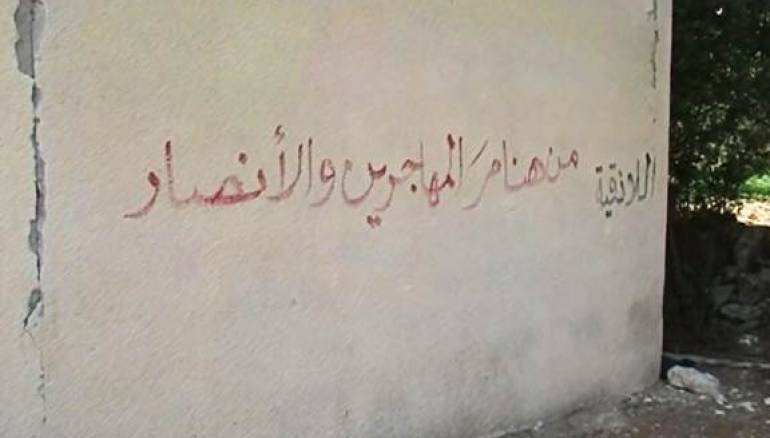 اللاذقية
من هنا مرَ المهاجرين والأنصار